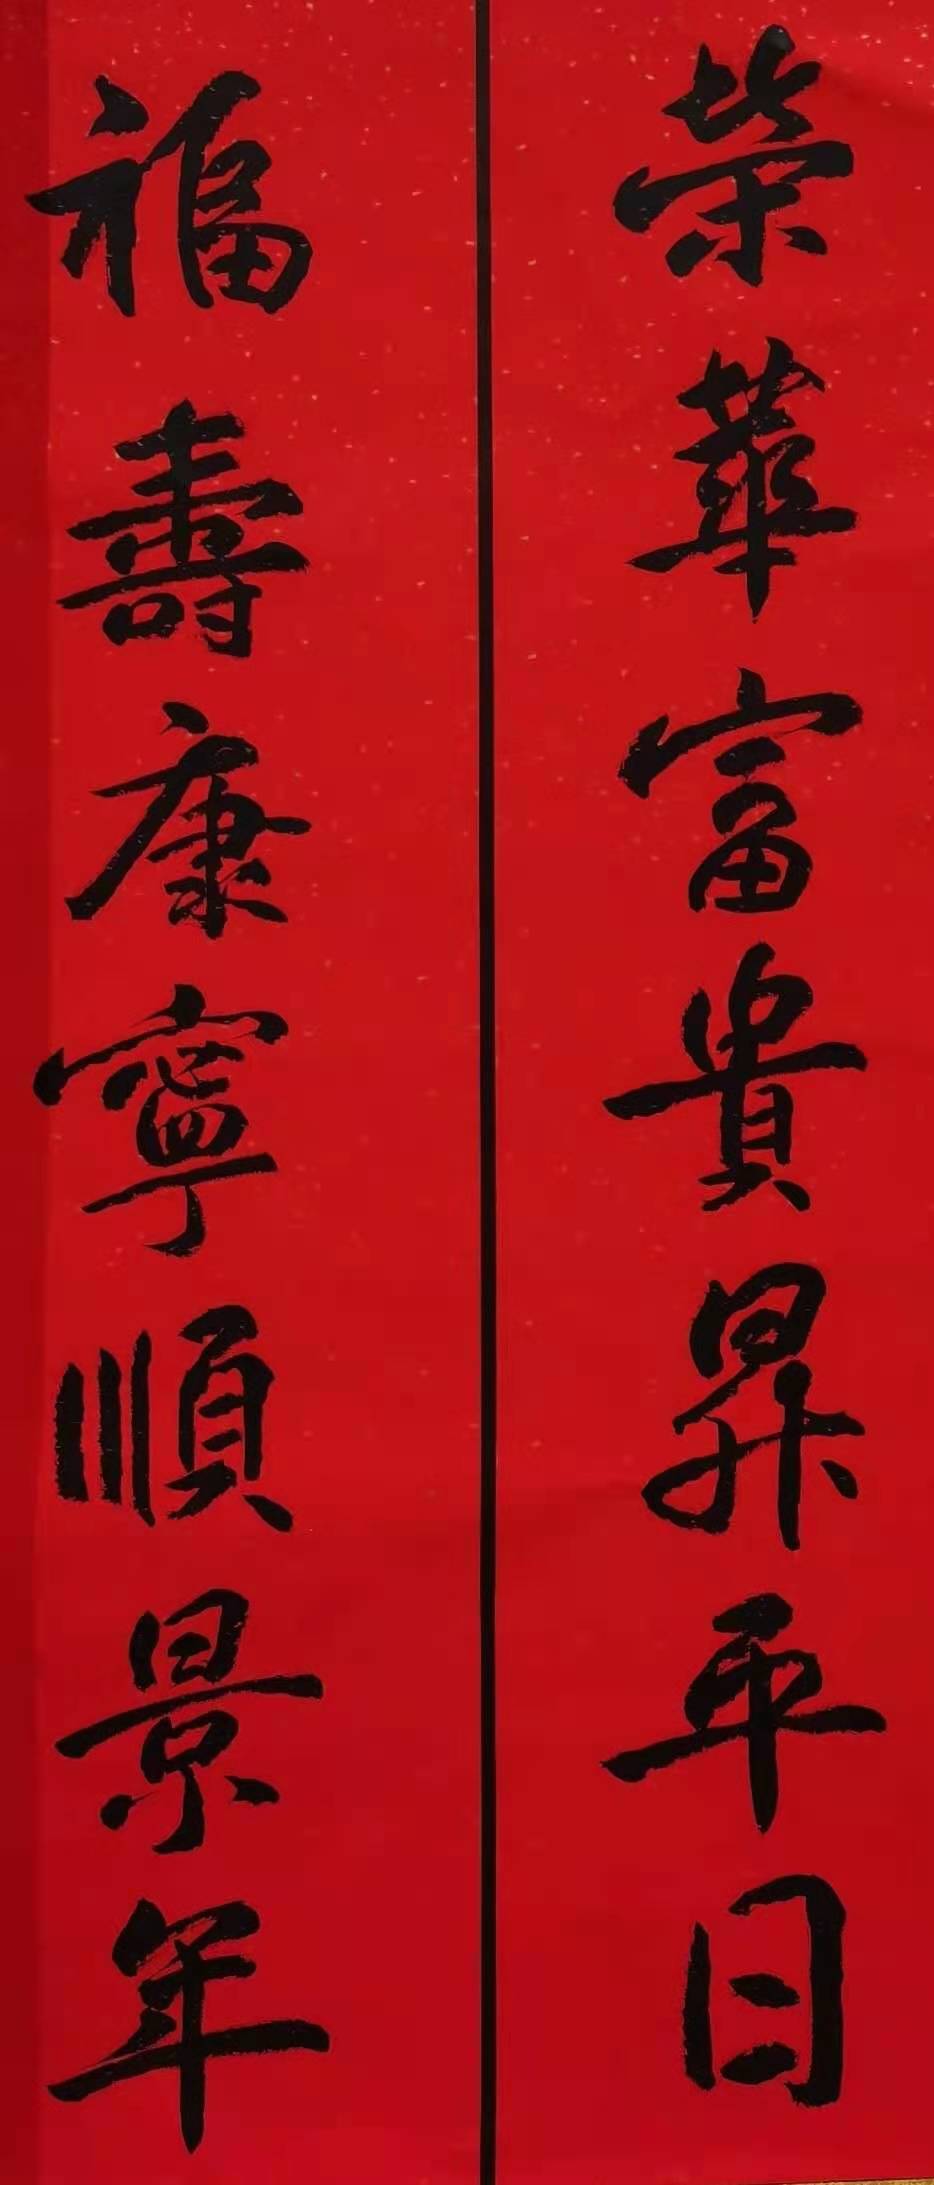 荣華富貴昇平日
福壽康寧順景年